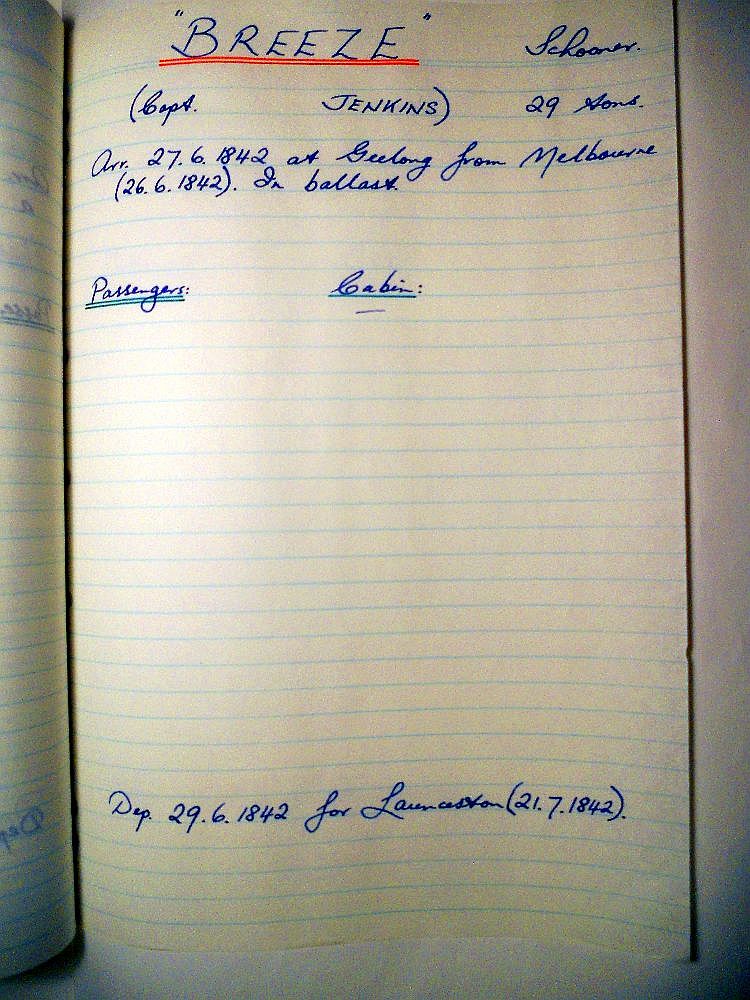 "BREEZE" Schooner.
(Capt. JENKINS) 29 tons.
Arr. 27.6.1842 at Geelong from Melbourne
(26.6.1842). In ballast.
Passengers: Cabin:
—
Dep. 29.6.1842 for Launceston (21.7.1842).